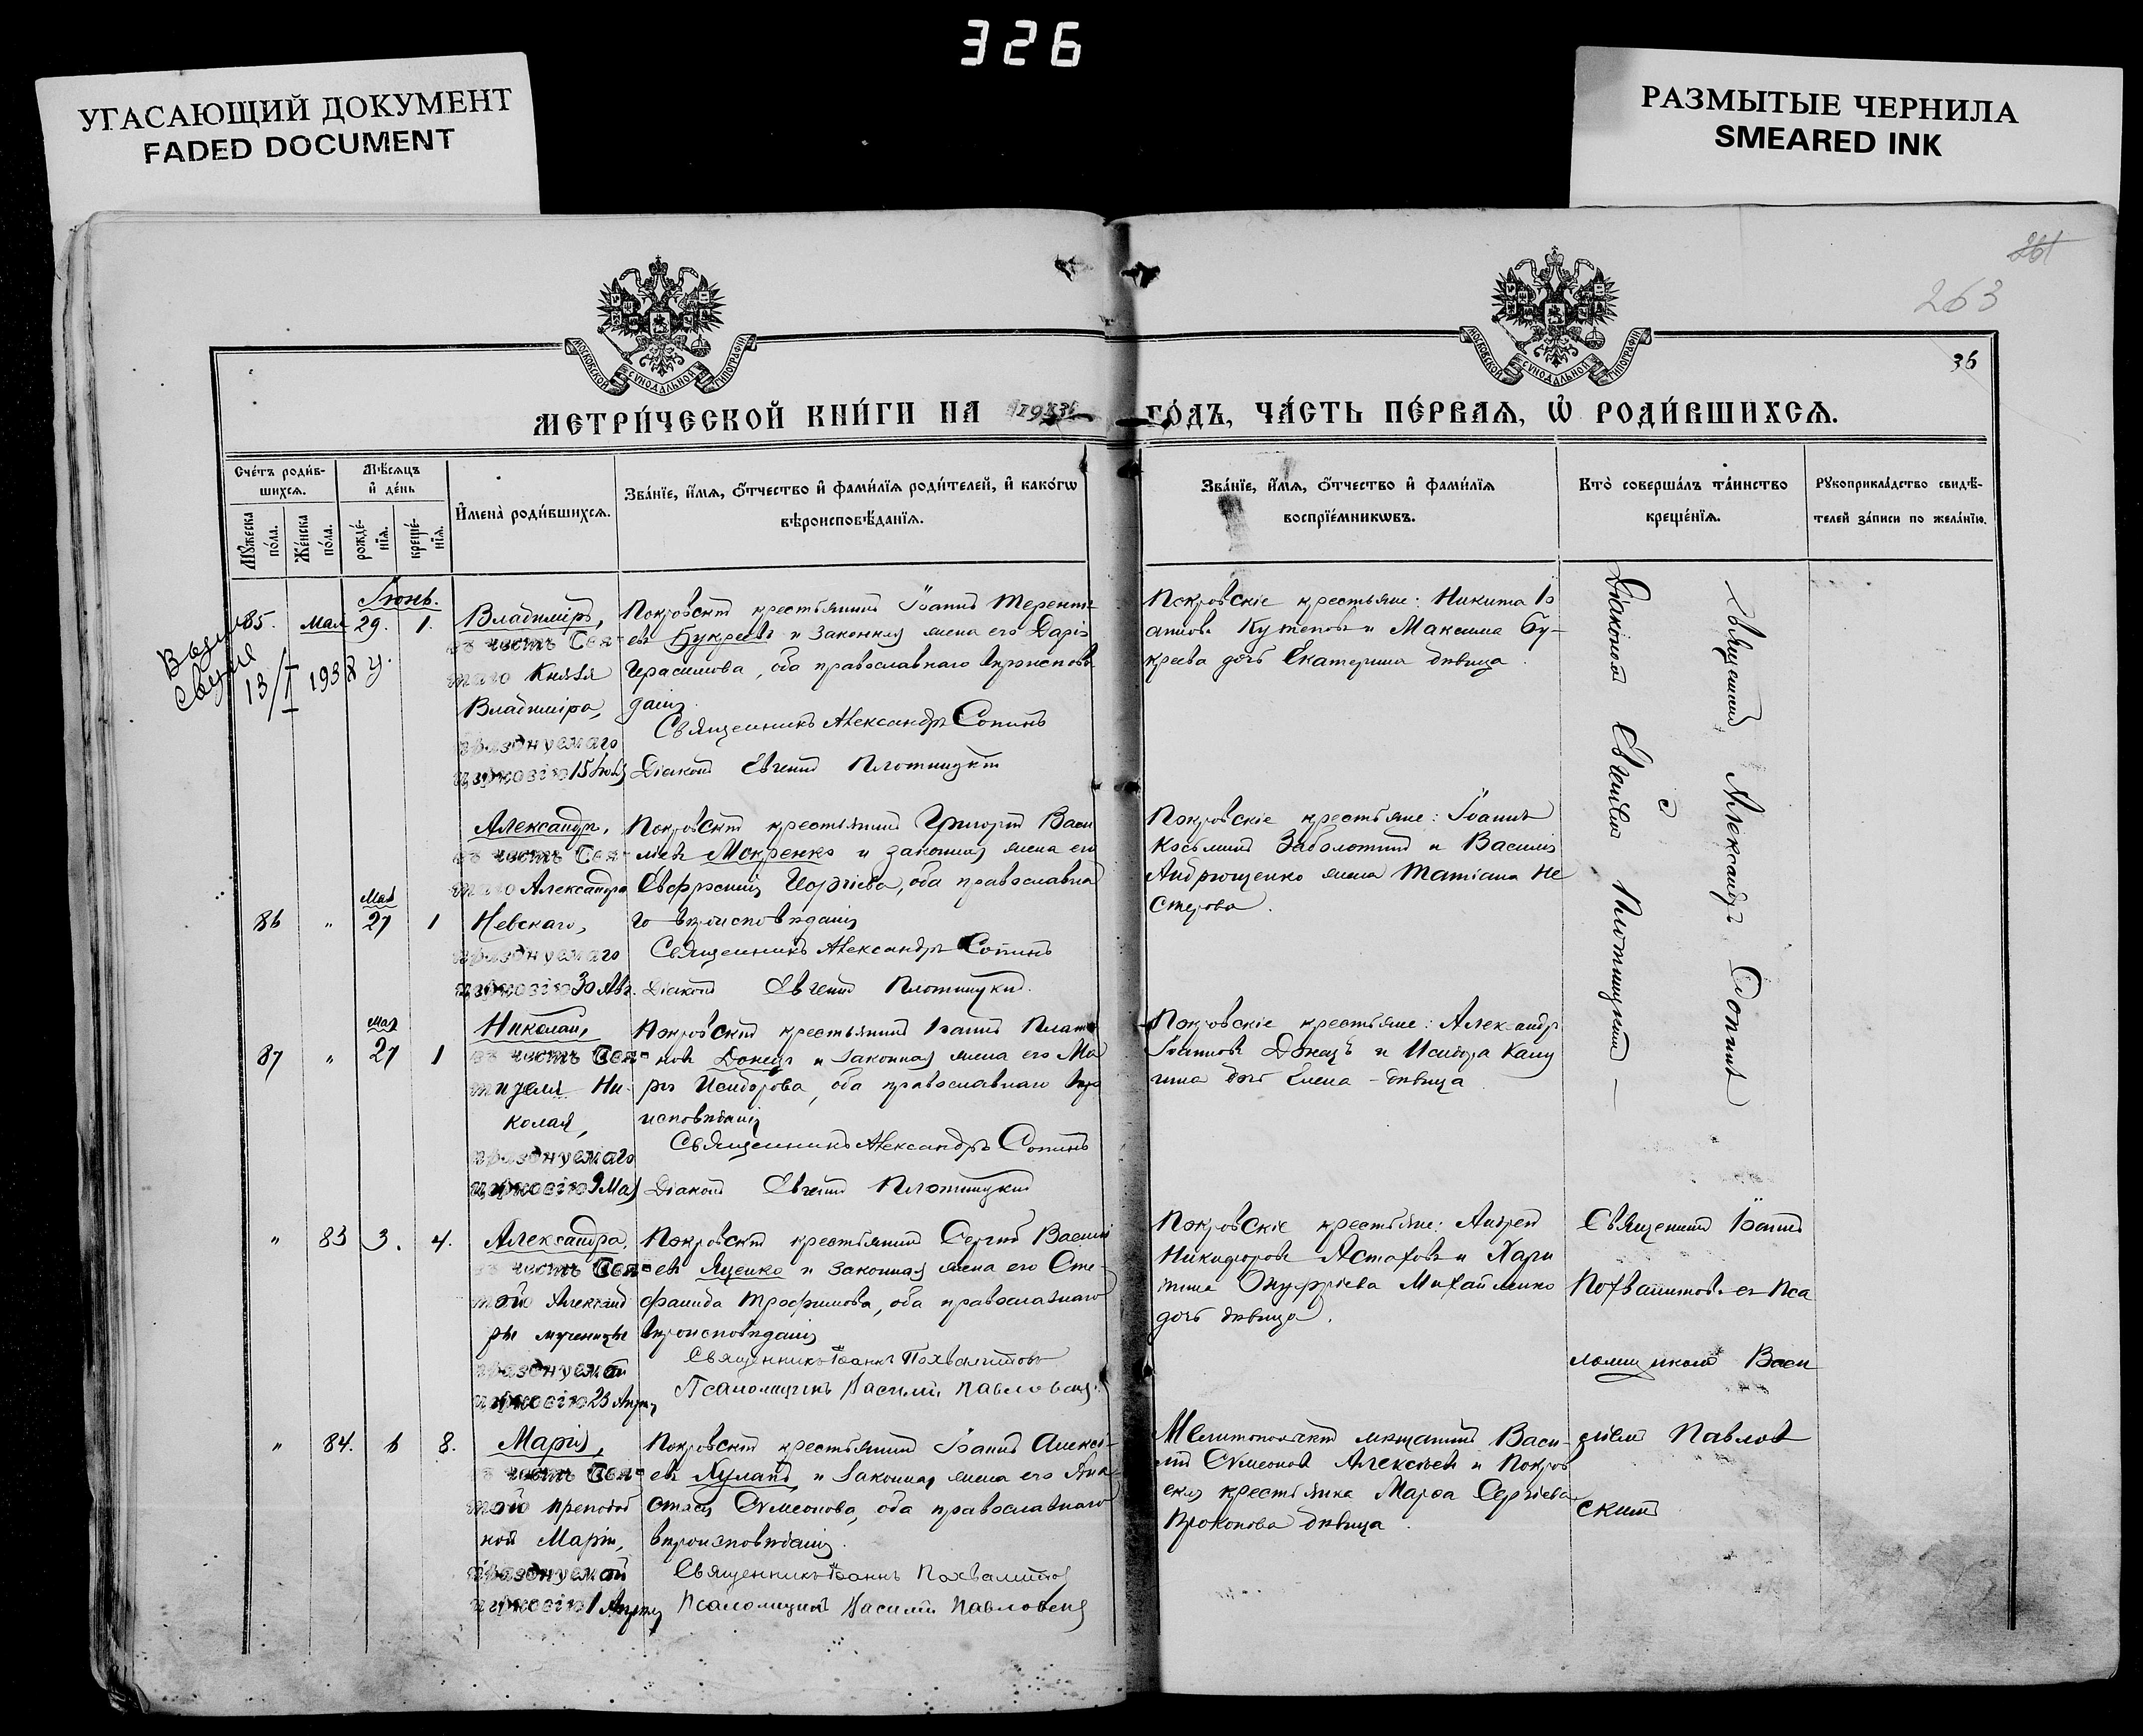 326
УГАСАЮЩИЙ ДОКУМЕНТ
FADED DOCUMENT
РАЗМЫТЫЕ ЧЕРНИЛА
SMEARED INK
261
263
36
МОСКОВСКОЙ СѴНОДАЛЬНОЙ ТИПОГРАФІИ
МОСКОВСКОЙ СѴНОДАЛЬНОЙ ТИПОГРАФІИ
МЕТРИ́ЧЕСКОЙ КНИ́ГИ НА
ГО́ДЪ, ЧА́СТЬ ПЕ́РВАѦ, Ѽ РОДИ́ВШИХСѦ.
Сче́тъ роди́в-
шихсѧ.
Мѣ́сѧцъ
и҆ де́нь
Мꙋ́жеска
по́ла.
Же́нска
по́ла.
рожде́-
нїѧ.
креще́-
нїѧ.
И҆мена̀ роди́вшихсѧ.
Зва́нїе, и҆́мѧ, ѻ҆́тчество и҆ фами́лїѧ роди́телей, и҆ како́гѡ
вѣроисповѣ́данїѧ.
Зва́нїе, и҆́мѧ, ѻ҆́тчество и҆ фами́лїѧ
воспрїе́мникѡвъ.
Кто̀ соверша́лъ та́инство
креще́нїѧ.
Рꙋкоприкла́дство свидѣ́-
телей за́писи по жела́нїю.
13/I 1938 г.
Іюнь.
85. Мая 29. 1.
Владиміръ,
въ честь Свя-
таго Князя
Владиміра,
празднуемаго
церковію 15 Іюля
Покровскій крестьянинъ Іоаннъ Теренті-
евъ Букреевъ и законная жена его Дарія
Герасимова, оба православнаго вѣроисповѣ
данія.
Священникъ Александръ Сопинъ
Діаконъ Евгеній Плотницкій
Покровскіе крестьяне: Никита Іо
анновъ Кутеповъ и Максима Бу-
креева дочь Екатерина дѣвица.
Священникъ Александръ Сопинъ
съ
Діакономъ Евгеніемъ Плотницкимъ —
86 " Мая 27 1
Александръ,
въ честь Свя-
таго Александра
Невскаго,
празднуемаго
церковію 30 Авг.
Покровскій крестьянинъ Григорій Васи
ліевъ Мокренко и законная жена его
Евфросинія Георгіева, оба православна
го вѣроисповѣданія
Священникъ Александръ Сопинъ
Діаконъ Евгеній Плотницкій.
Покровскіе крестьяне: Іоаннъ
Косьминъ Заболотній и Василія
Андрющенко жена Татіана Не
стерова.
87 " Мая 27 1
Николай,
въ честь Свя-
тителя Ни-
колая,
празднуемаго
церковію 9 Мая
Покровскій крестьянинъ Іоаннъ Плато
новъ Донецъ и законная жена его Ма
рія Исидорова, оба православнаго вѣро
исповѣданія
Священникъ Александръ Сопинъ
Діаконъ Евгеній Плотницкій
Покровскіе крестьяне: Александръ
Іоанновъ Донецъ и Исидора Каш
дочь Елена - дѣвица
" 83 3. 4.
Александра,
въ честь Свя-
той Александ
ры мученицы
празднуемой
церковію 23 Апрѣля
Покровскій крестьянинъ Сергій Василі
евъ Яценко и законная жена его Сте-
фанида Трофимова, оба православнаго
вѣроисповѣданія
Священникъ Іоаннъ Похвалитовъ
Псаломщикъ Василій Павловскій
Покровскіе крестьяне: Андрей
Никифоровъ Астаховъ и Хари
тина Онуфріева Михайленко
дочь дѣвица.
Священникъ Іоаннъ
Похвалитовъ съ Пса
ломщикомъ Васи
ліемъ Павлов
скимъ
" 84. 6 8.
Марія,
въ честь Свя-
той преподоб
ной Маріи,
празднуемой
церковію 1 Апрѣля
Покровскій крестьянинъ Іоаннъ Алексі-
евъ Хуландъ и законная жена его Ана-
стасія Сѵмеонова, оба православнаго
вѣроисповѣданія.
Священникъ Іоаннъ Похвалитовъ
Псаломщикъ Василій Павловскій
Мелитопольскій мѣщанинъ Васи-
лій Сѵмеоновъ Алексѣевъ и Покров
ская крестьянка Марѳа Сергіева
Прокопова дѣвица.